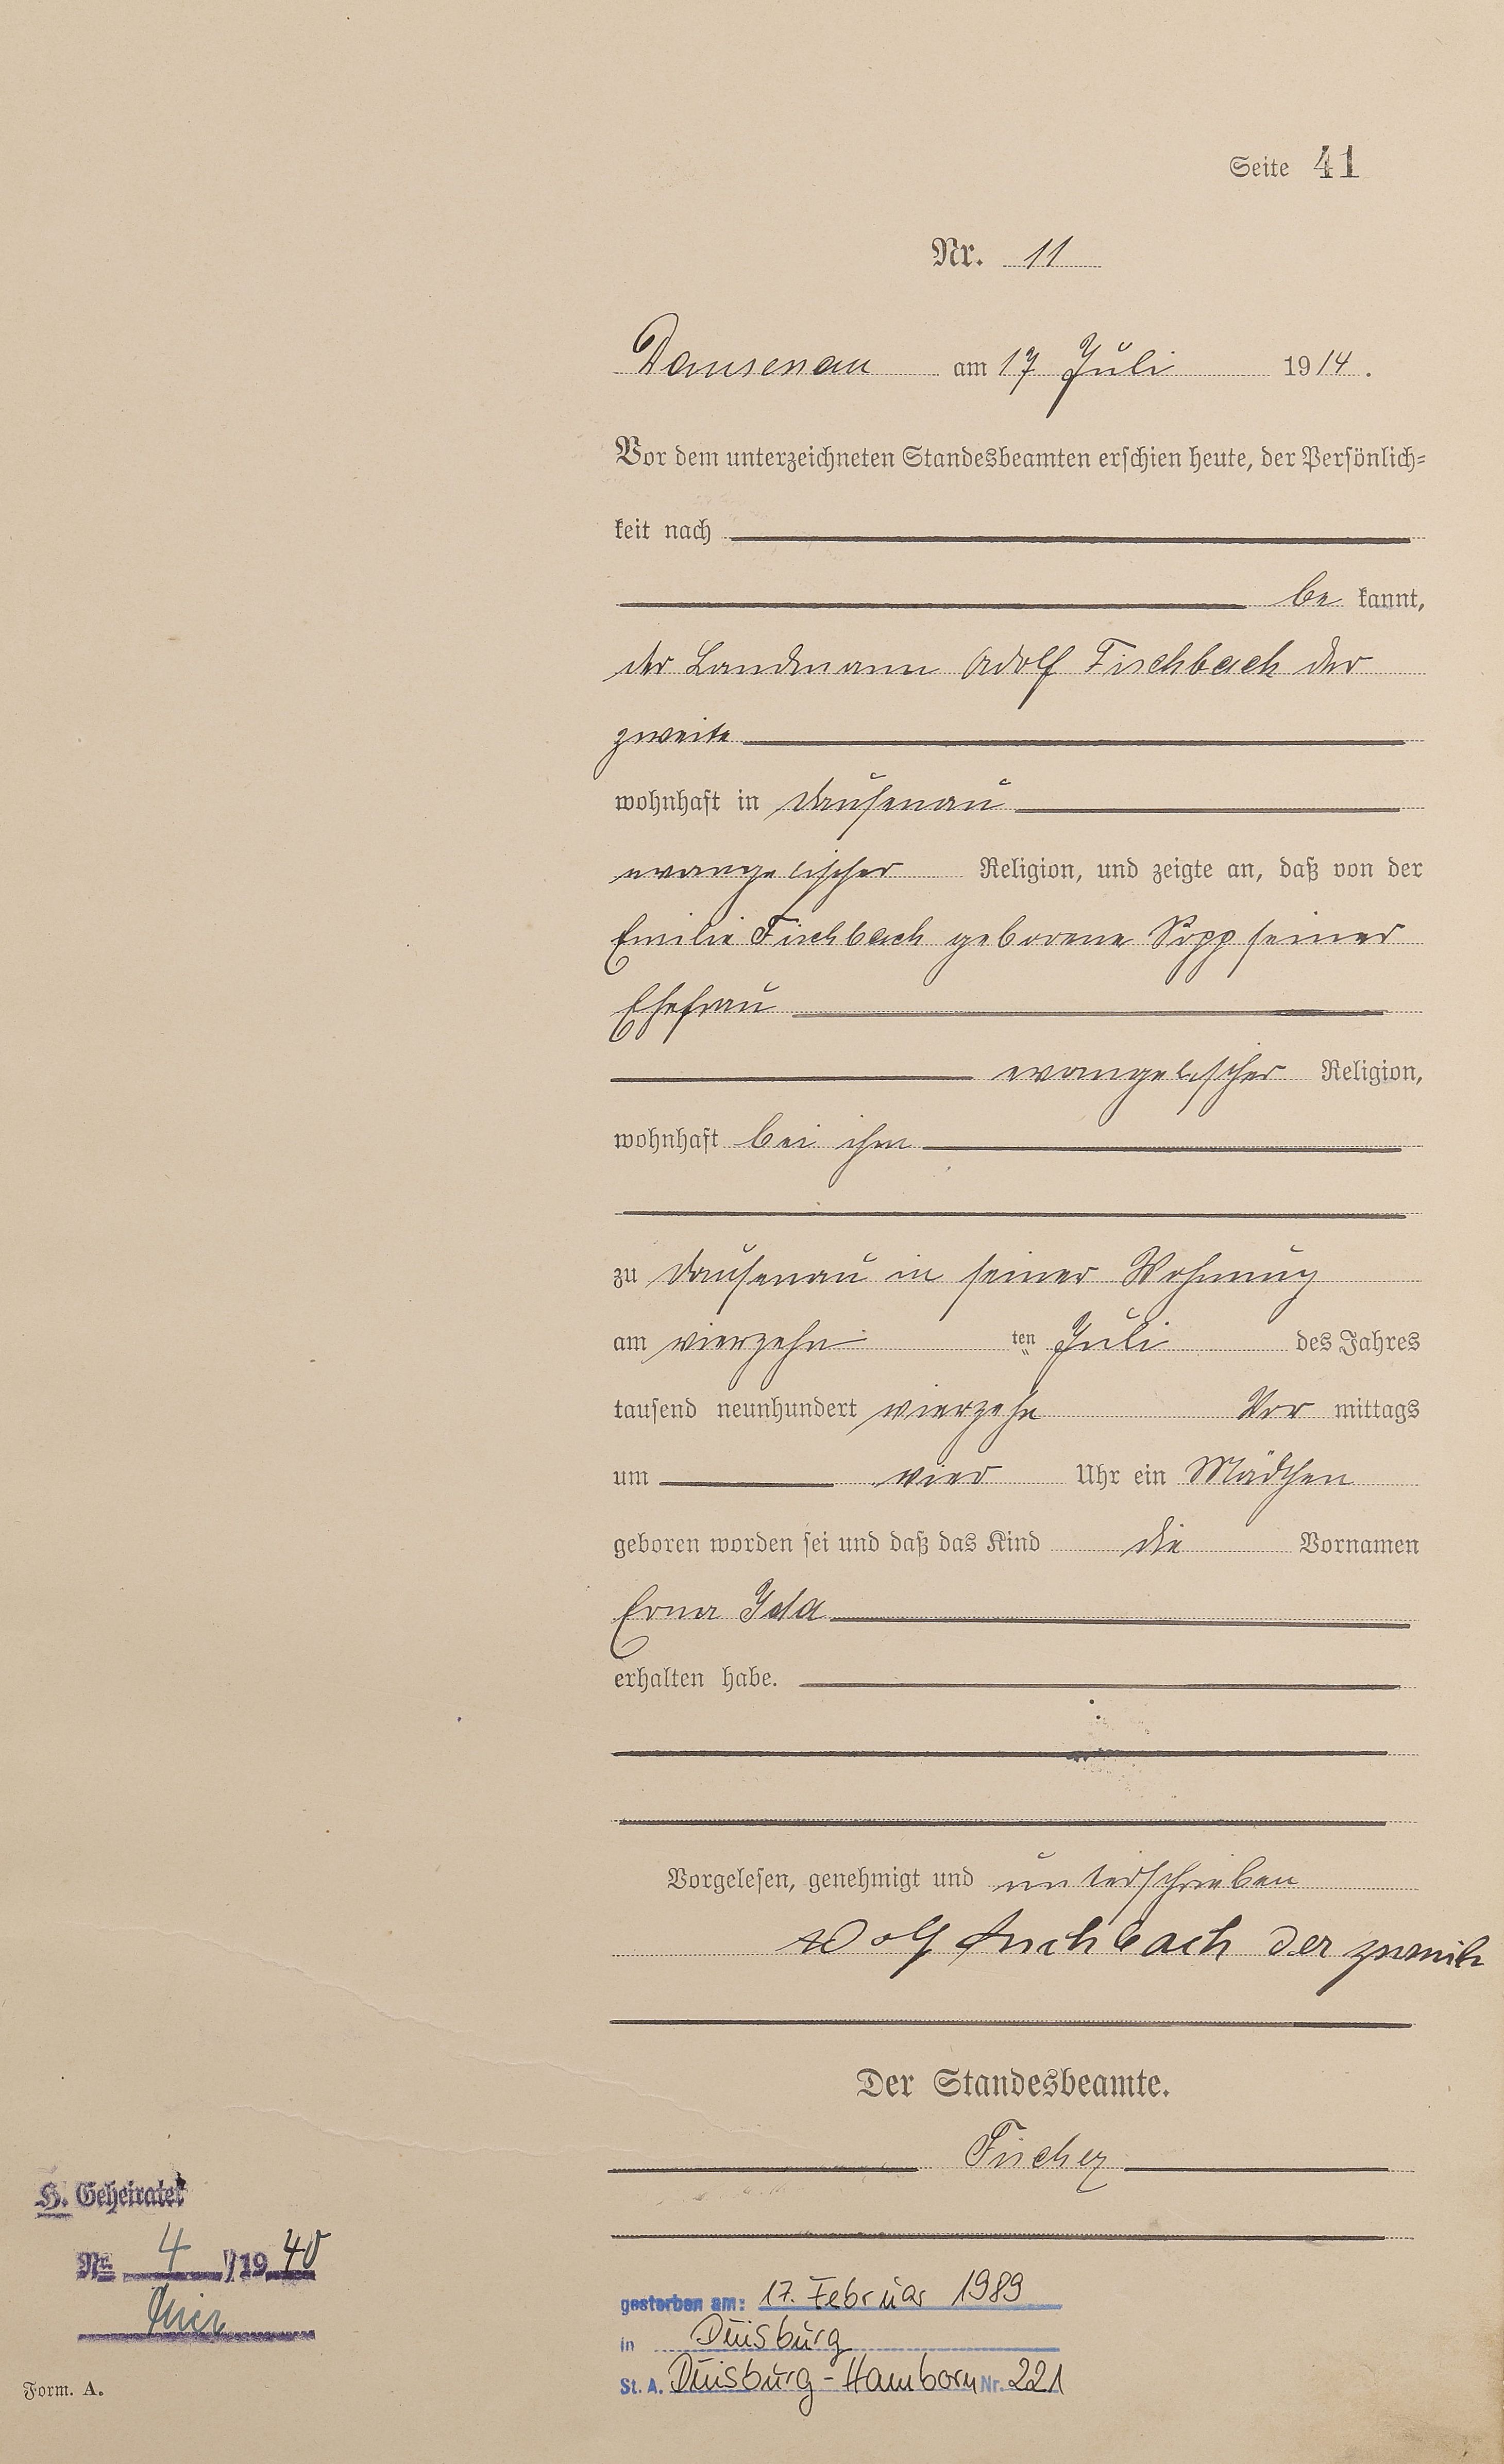 Seite 41
Nr. 11
Dausenau am 17 Juli 1914.
Vor dem unterzeichneten Standesbeamten erschien heute, der Persönlich-
keit nach
be kannt,
der Landmann Adolf Fischbach der
zweite
wohnhaft in Dausenau
evangelischer Religion, und zeigte an, daß von der
Emilie Fischbach geborene Sopp seiner
Ehefrau
evangelischer Religion,
wohnhaft bei ihm
zu Dausenau in seiner Wohnung
am vierzehn ten Juli des Jahres
tausend neunhundert vierzehn Vor mittags
um vier Uhr ein Mädchen
geboren worden sei und daß das Kind die Vornamen
Erna Ida
erhalten habe.
Vorgelesen, genehmigt und unterschrieben
Adolf Fischbach der zweite
Der Standesbeamte.
Fischer
H. Geheiratet
Nr. 4 /1940
hier
gestorben am: 17. Februar 1989
in Duisburg
St. A. Duisburg-Hamborn Nr. 221
Form. A.